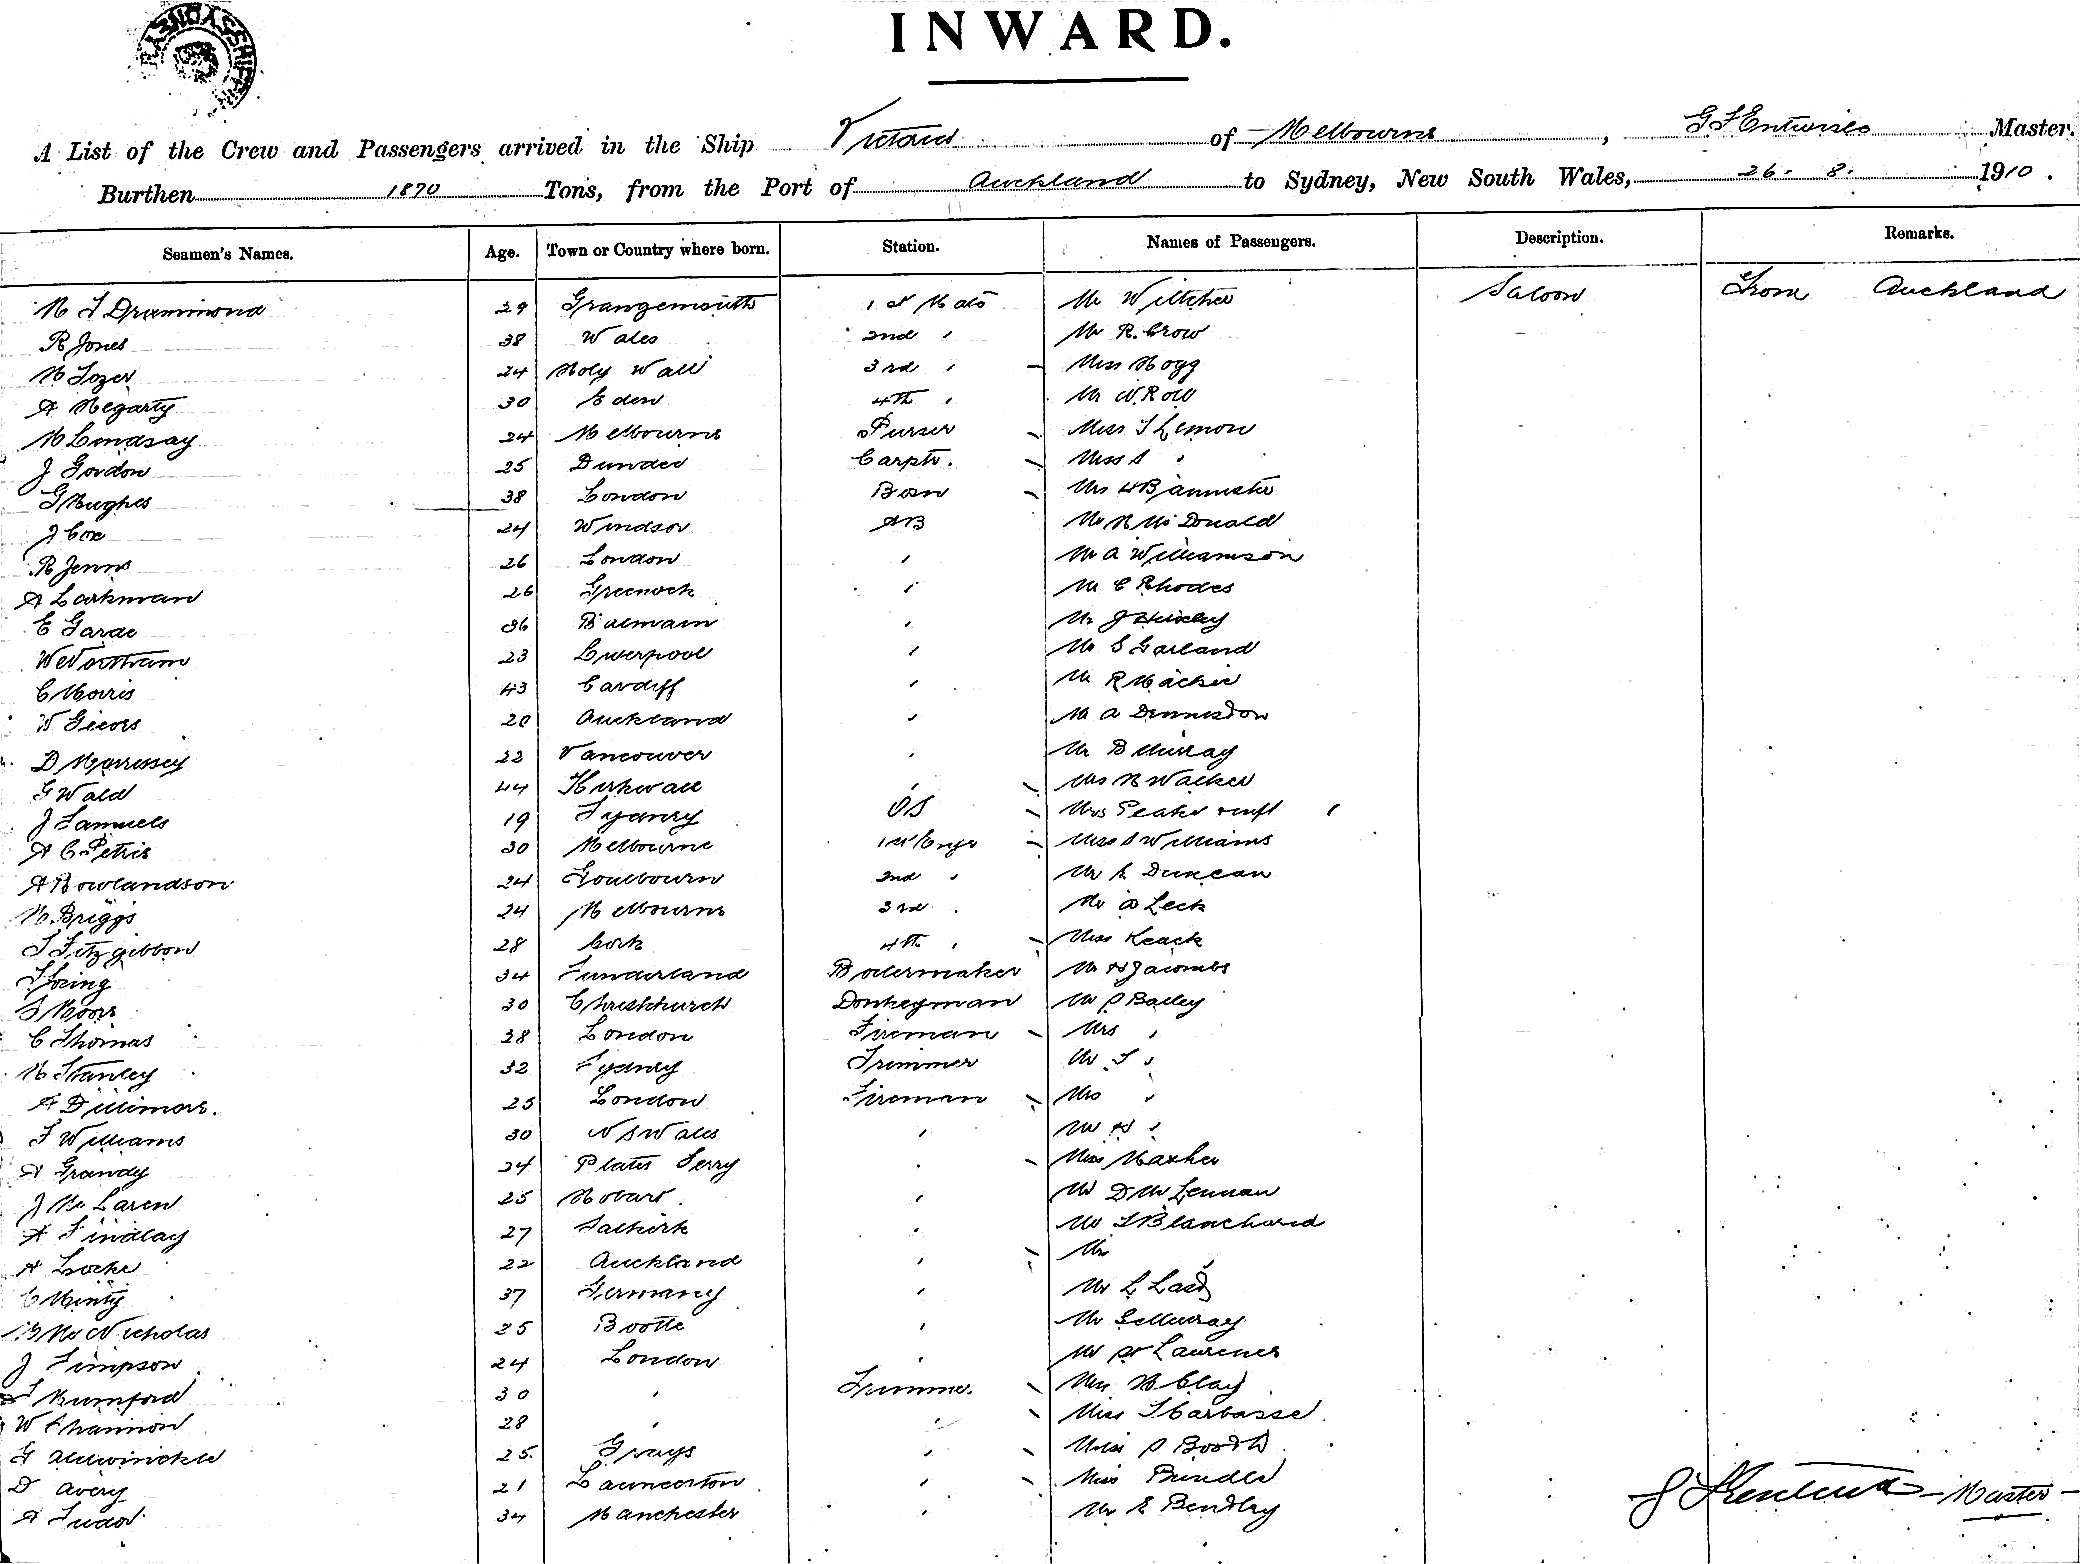 SYDNEY SHIPPING
INWARD.
A List of the Crew and Passengers arrived in the Ship Victoria of Melbourne, G F Entwisle Master.
Burthen 1870 Tons, from the Port of Auckland to Sydney, New South Wales, 26. 8. 1910.
Seamen's Names. Age. Town or Country where born. Station. Names of Passengers. Description. Remarks.
Drummond 29 Grangemouth 1st Mate Mr Wiltcher Saloon From Auckland
R Jones 38 Wales 2nd " Mr R. Crow
H Tozer 24 Holy Wall 3rd " Miss Hogg
A Hegarty 30 Eden 4th " Mr W. Row
H Lindsay 24 Melbourne Purser Miss Lemon
J Gordon 25 Dundee Carptr. Miss "
G Hughes 38 London Bosn Mrs Bannister
J Cox 24 Windsor AB Mr McDonald
R Jenns 26 London " Mr A Williamson
A Larkman 26 Greenock " Mr C Rhodes
E Garde 36 Balmain " Mr J
W Wortham 23 Liverpool " Mr S Garland
C Morris 43 Cardiff " Mr R Mackie
W 20 Auckland " Mr A
D Morrissey 22 Vancouver " Mr B Murray
G Wald 44 Kirkwall " Mrs H Walker
J Samuels 19 Sydney OS Mrs Peake & inft "
A C Petrie 30 Melbourne 1st Engr Miss Williams
A Rowlandson 24 Goulbourn 2nd " Mr Duncan
H Briggs 24 Melbourne 3rd " Mr Leck
T Fitzgibbon 28 Cork 4th " Miss Keack
34 Sunderland Boilermaker Mr H Jacombs
S Moore 30 Christchurch Donkeyman Mr P Bailey
C Thomas 38 London Fireman Mrs "
H Stanley 32 Sydney Trimmer Mr "
A Dillimore. 25 London Fireman Mrs "
F Williams 30 N S Wales " Mr H "
A Grandy 24 Plates Ferry " Miss
J McLaren 25 Hobart " Mr D McLennan
A Findlay 27 " Mr Blanchard
A Locke 22 Auckland " Mrs "
C Minty 37 Germany " Mr L
McNicholas 25 Bootle " Mr Murray
J Simpson 24 London " Mr Laurence
Mumford 30 " Trimmer. Mrs H Clay
W Channon 28 " " Miss
G Alderwinckle 25 Grays " Miss Booth
D Avery 21 Launceston " Miss Brindle
A 34 Manchester " Mr E Bendley
Master